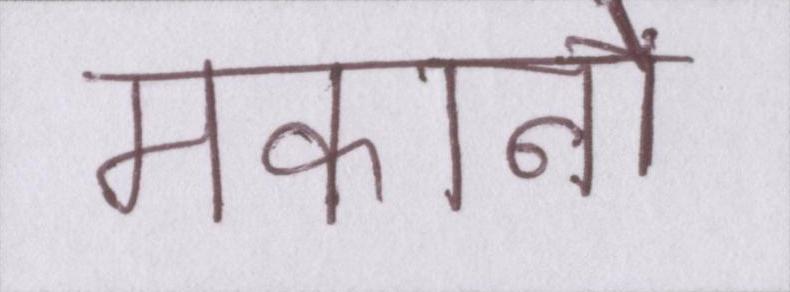 मकानों